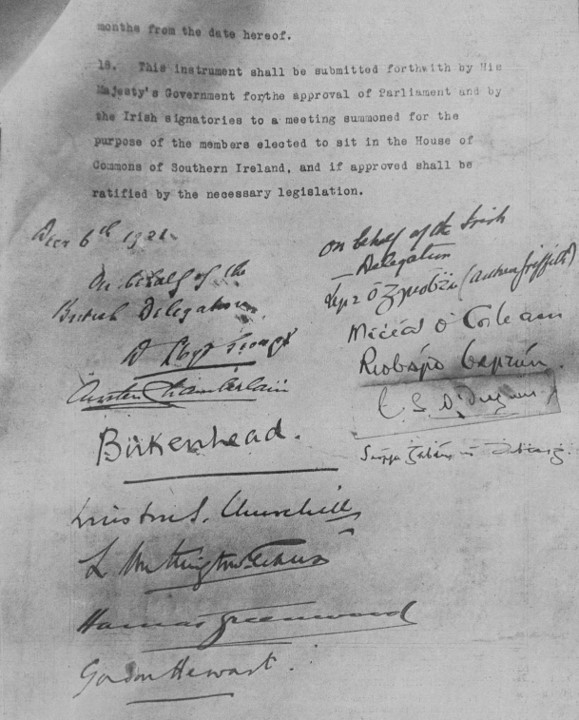 months from the date hereof.
18. This instrument shall be submitted forthwith by His
Majesty's Government for the approval of Parliament and by
the Irish signatories to a meeting summoned for the
purpose of the members elected to sit in the House of
Commons of Southern Ireland, and if approved shall be
ratified by the necessary legislation.
Decr 6th 1921
On behalf of the
British Delegation
D Lloyd George
Austen Chamberlain
Birkenhead.
Winston S. Churchill
L Worthington Evans
Hamar Greenwood
Gordon Hewart.
On behalf of the Irish
Delegation
(Arthur Griffith)
Mícéal Ó Coileain
Riobárd Bartún.
E. S. Ó Dugain